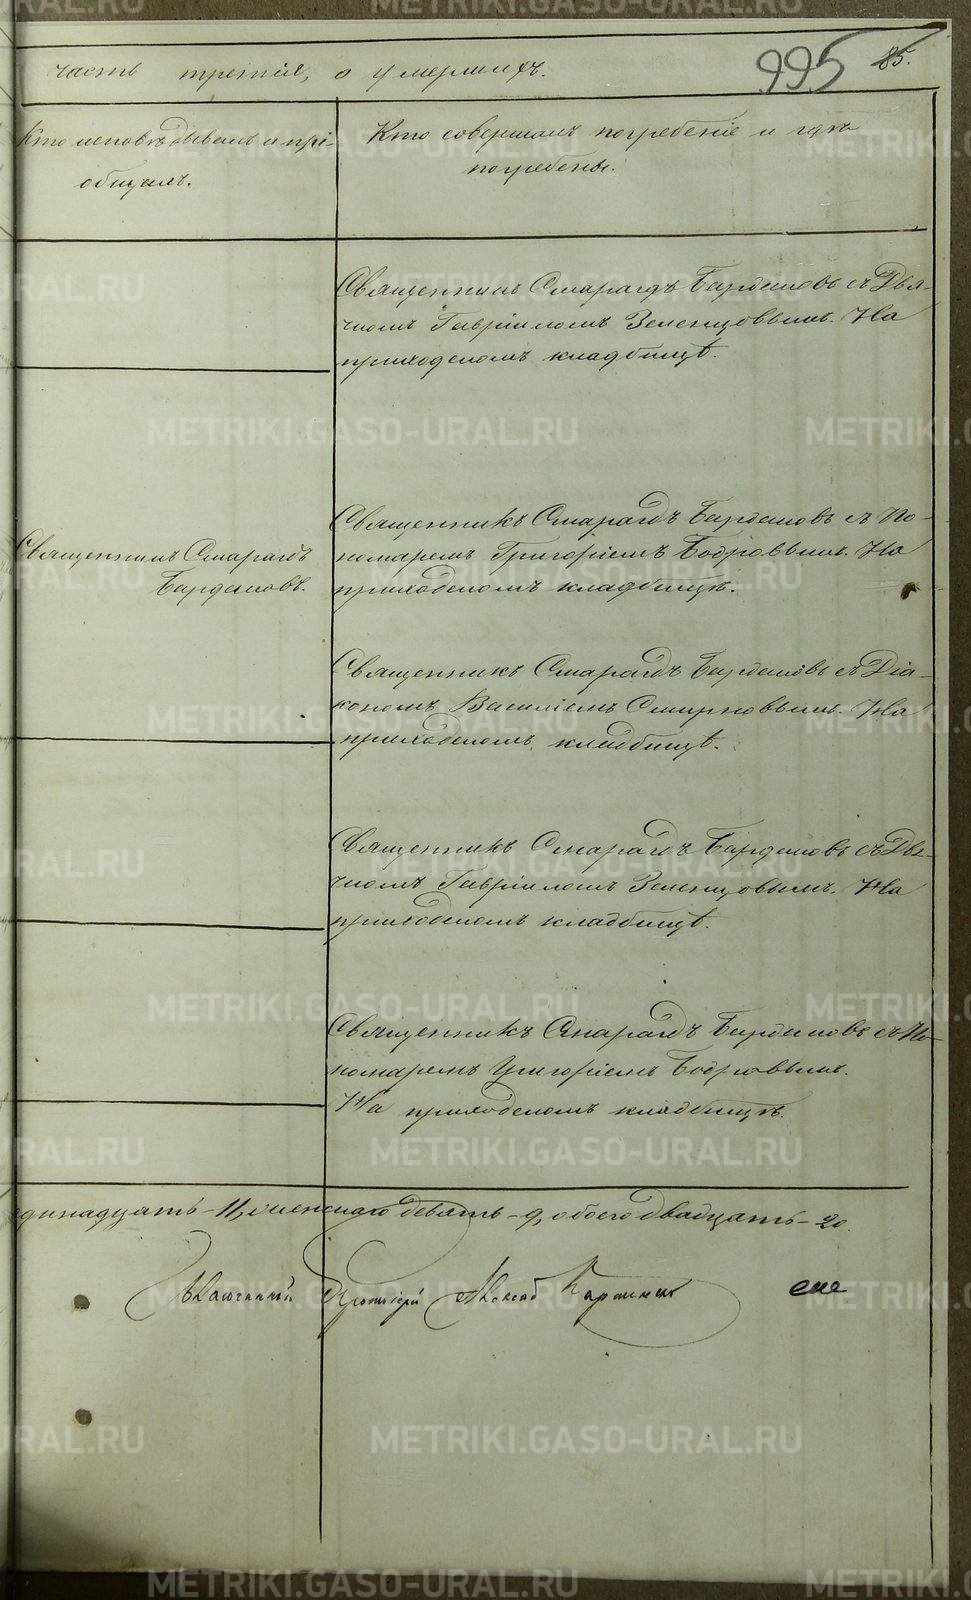 часть третія, о умершихъ.
995 85.
Кто исповѣдывалъ и прі-
общалъ.
Кто совершалъ погребеніе и гдѣ
погребены.
Священникъ Смарагдъ Бардановъ съ Дья-
чкомъ Гавріиломъ Зеленцовымъ. На
приходскомъ кладбищѣ.
Священникъ Смарагдъ
Бардановъ.
Священникъ Смарагдъ Бардановъ съ По-
номаремъ Григоріемъ Бодровымъ. На
приходскомъ кладбищѣ.
Священникъ Смарагдъ Бардановъ съ Діа-
кономъ Василіемъ Смирновымъ. На
приходскомъ кладбищѣ.
Священникъ Смарагдъ Бардановъ съ Дья-
чкомъ Гавріиломъ Зеленцовымъ. На
приходскомъ кладбищѣ.
Священникъ Смарагдъ Бардановъ съ По-
номаремъ Григоріемъ Бодровымъ.
На приходскомъ кладбищѣ.
динадцать - 11, женскаго девять - 9, обоего двадцать - 20.
Протоіерей
METRIKI.GASO-URAL.RU